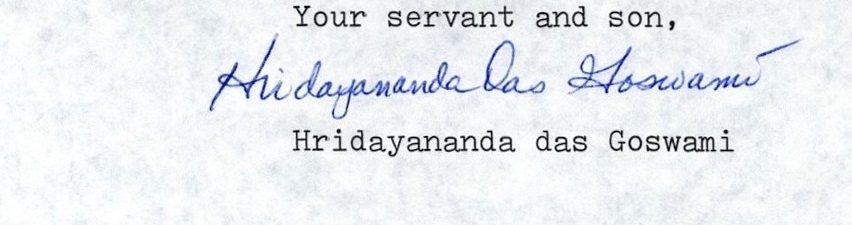 Your servant and son,
Hridayananda Das Goswami
Hridayananda das Goswami